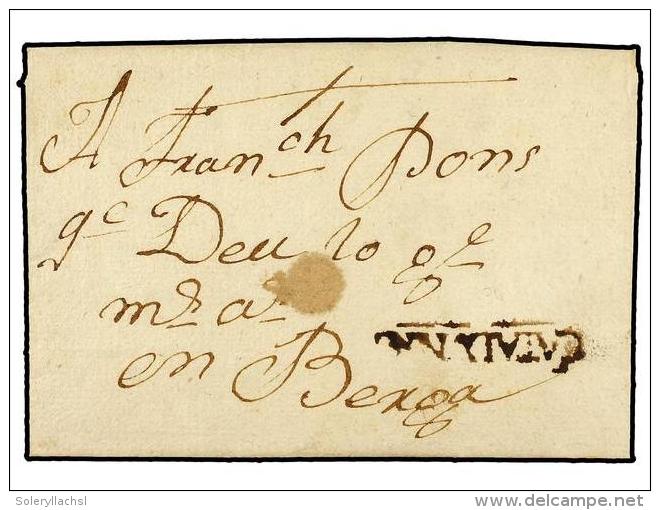 A Fran^ch Pons
q^e Deu lo g^e
m^s a^s
en Berga
Soleryllachsl
delcampe.net